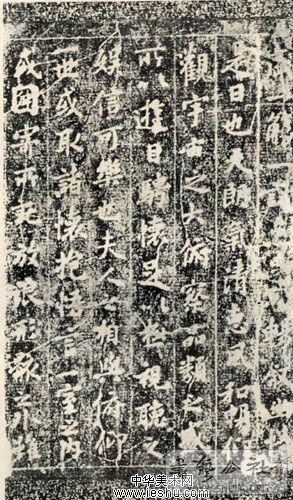 是日也天朗氣清惠風和
觀宇宙之大俯察品類之盛
所以遊目騁懷足以極視聽之
娛信可樂也夫人之相與俯仰
一世或取諸懷抱悟言一室之内
或因寄所託放浪形骸之外雖
中华美术网
www.ieshu.com